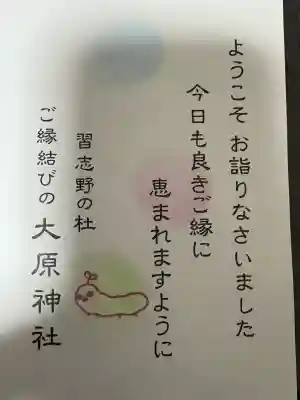 ようこそ お詣りなさいました
今日も良きご縁に
恵まれますように
習志野の杜
ご縁結びの 大原神社